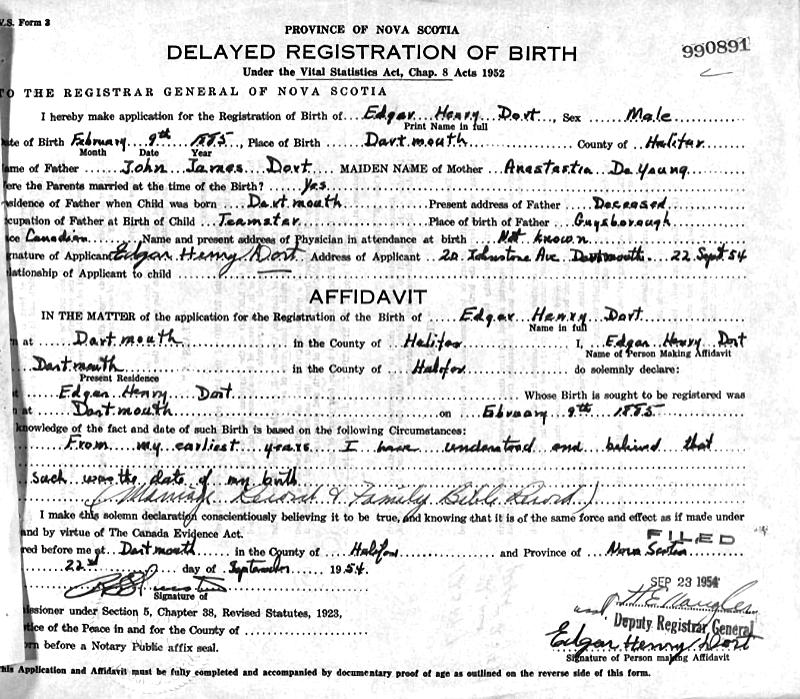 V.S. Form 3
PROVINCE OF NOVA SCOTIA
DELAYED REGISTRATION OF BIRTH
990891
Under the Vital Statistics Act, Chap. 8 Acts 1952
TO THE REGISTRAR GENERAL OF NOVA SCOTIA
I hereby make application for the Registration of Birth of Edgar Henry Dort, Sex Male
Print Name in full
ate of Birth February 9th 1885, Place of Birth Dartmouth County of Halifax
Month Date Year
ame of Father John James Dort MAIDEN NAME of Mother Anastastia De Young
ere the Parents married at the time of the Birth? Yes
esidence of Father when Child was born Dartmouth Present address of Father Deceased
ccupation of Father at Birth of Child Teamster Place of birth of Father Guysborough
ce Canadian Name and present address of Physician in attendance at birth Not known
gnature of Applicant Edgar Henry Dort Address of Applicant 20 Johnstone Ave Dartmouth 22 Sept 54
lationship of Applicant to child
AFFIDAVIT
IN THE MATTER of the application for the Registration of the Birth of Edgar Henry Dort
Name in full
n at Dartmouth in the County of Halifax I, Edgar Henry Dort
Name of Person Making Affidavit
Dartmouth in the County of Halifax do solemnly declare:
Present Residence
t Edgar Henry Dort Whose Birth is sought to be registered was
n at Dartmouth on Ebruary 9th 1885
knowledge of the fact and date of such Birth is based on the following Circumstances:
From my earliest years I have understood and believed that
such was the date of my birth
(Marriage Record & Family Bible Record)
I make this solemn declaration conscientiously believing it to be true, and knowing that it is of the same force and effect as if made under
and by virtue of The Canada Evidence Act.
FILED
red before me at Dartmouth in the County of Halifax and Province of Nova Scotia
22nd day of September 1954
SEP 23 1954
Signature of
issioner under Section 5, Chapter 38, Revised Statutes, 1923,
Deputy Registrar General
tice of the Peace in and for the County of
Edgar Henry Dort
rn before a Notary Public affix seal.
Signature of Person making Affidavit
This Application and Affidavit must be fully completed and accompanied by documentary proof of age as outlined on the reverse side of this form.